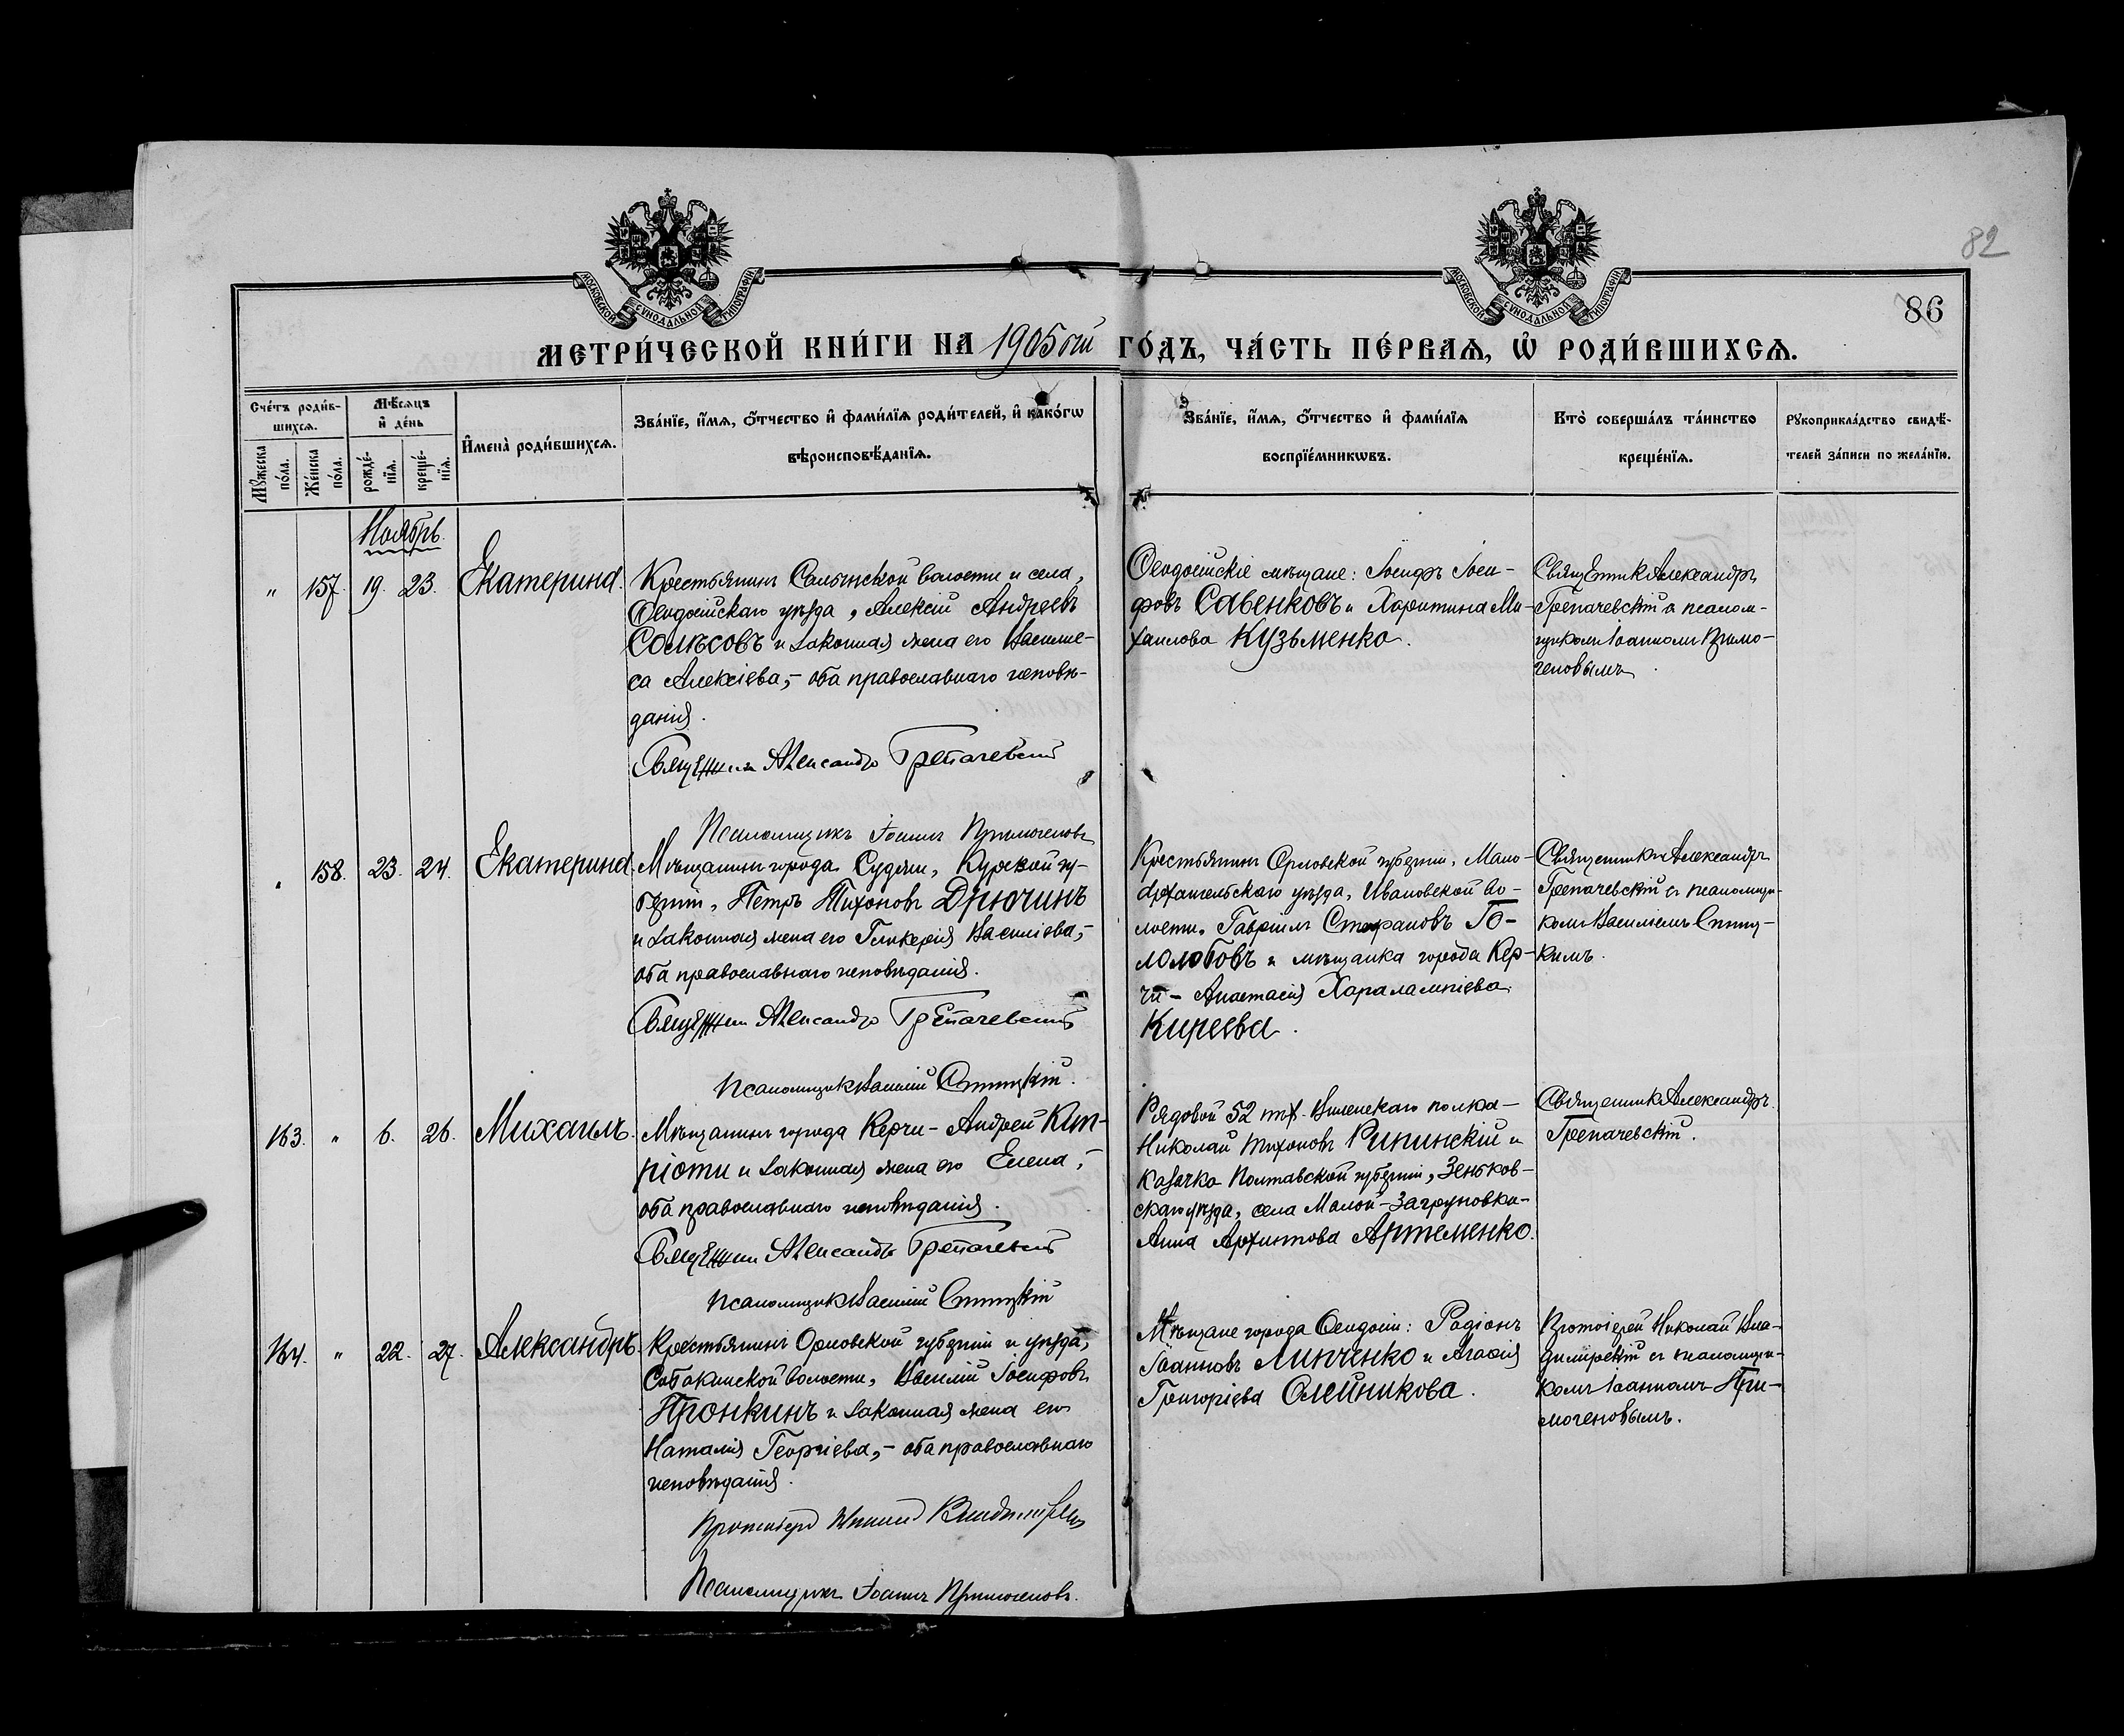 82
86
МОСКОВСКОЙ СѴНОДАЛЬНОЙ ТИПОГРАФІИ
МОСКОВСКОЙ СѴНОДАЛЬНОЙ ТИПОГРАФІИ
МЕТРИ́ЧЕСКОЙ КНИ́ГИ НА 1905 ый ГО́ДЪ, ЧА́СТЬ ПЕ́РВАѦ, Ѽ РОДИ́ВШИХСѦ.
Сче́тъ роди́в-
шихсѧ.
Мꙋ́жеска по́ла.
Же́нска по́ла.
Мѣ́сѧцъ и҆ де́нь
рожде́-
нїѧ.
креще́-
нїѧ.
И҆мена̀ роди́вшихсѧ.
Зва́нїе, и҆́мѧ, ѻ҆́тчество и҆ фами́лїѧ роди́телей, и҆ како́гѡ
вѣроисповѣ́данїѧ.
Зва́нїе, и҆́мѧ, ѻ҆́тчество и҆ фами́лїѧ
воспрїе́мникѡвъ.
Кто̀ соверша́лъ та́инство
креще́нїѧ.
Рꙋкоприкла́дство свидѣ́-
телей за́писи по жела́нїю.
Ноябрь.
" 157. 19. 23. Екатерина.
Крестьянинъ Салынской волости и села,
Ѳеодосійскаго уѣзда, Алексій Андреевъ
и законная жена его Василис-
са Алексіева, - оба православнаго исповѣ-
данія.
Священникъ Александръ Грепачевскій
Псаломщикъ Іоаннъ Примогеновъ
Ѳеодосійскіе мѣщане: Іосифъ Іоси-
фовъ Савенковъ и Харитина Ми-
хаилова Кузьменко.
Священникъ Александръ
Грепачевскій съ псалом-
щикомъ Іоанномъ Примо-
геновымъ.
" 158. 23. 24. Екатерина.
Мѣщанинъ города Суджи, Курской гу-
берніи, Петръ Тихоновъ Дрючинъ
и законная жена его Гликерія Василіева, -
оба православнаго исповѣданія.
Священникъ Александръ Грепачевскій
Псаломщикъ Василій Спицкій.
Крестьянинъ Орловской губерніи, Мало-
архангельскаго уѣзда, Ивановской во-
лости, Гавріилъ Стефановъ Го-
лолобовъ и мѣщанка города Кер-
чи - Анастасія Харалампіева
Киреева.
Священникъ Александръ
Грепачевскій съ псаломщи-
комъ Василіемъ Спиц-
кимъ.
163. " 6. 26. Михаилъ.
Мѣщанинъ города Керчи - Андрей Кип-
ріоти и законная жена его Елена, -
оба православнаго исповѣданія.
Священникъ Александръ Грепачевскій
Псаломщикъ Василій Спицкій
Рядовой 52 пѣх. Виленскаго полка -
Николай Тихоновъ Рипинскій и
казачка Полтавской губерніи, Зеньков-
скаго уѣзда, села Малой-Загруновки -
Анна Архиппова Артеменко.
Священникъ Александръ
Грепачевскій.
164. " 22. 27. Александръ.
Крестьянинъ Орловской губерніи и уѣзда,
Собакинской волости, Василій Іосифовъ
Пронкинъ и законная жена его
Наталія Георгіева, - оба православнаго
исповѣданія.
Протоіерей Николай Владимірскій
Псаломщикъ Іоаннъ Примогеновъ.
Мѣщане города Ѳеодосіи: Родіонъ
Іоанновъ Линченко и Агаѳія
Григоріева Олейникова.
Протоіерей Николай Вла-
димірскій съ псаломщи-
комъ Іоанномъ При-
могеновымъ.